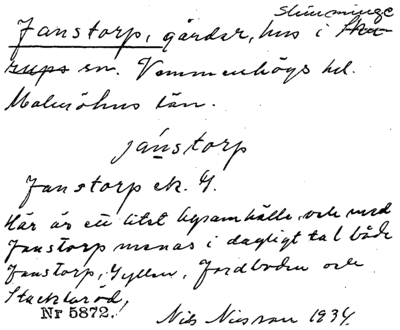 Slimminge
Janstorp, gårdar, hus i Ska-
rups sn. Vemmenhögs hd.
Malmöhus län.
jánstorp
Janstorp ek. J.
Här är ett litet bysamhälle, och med
Janstorp menas i dagligt tal både
Janstorp, Gyllen, Jordboden och
Stackaröd,
Nr 5872.
Nils Nilsson 1934